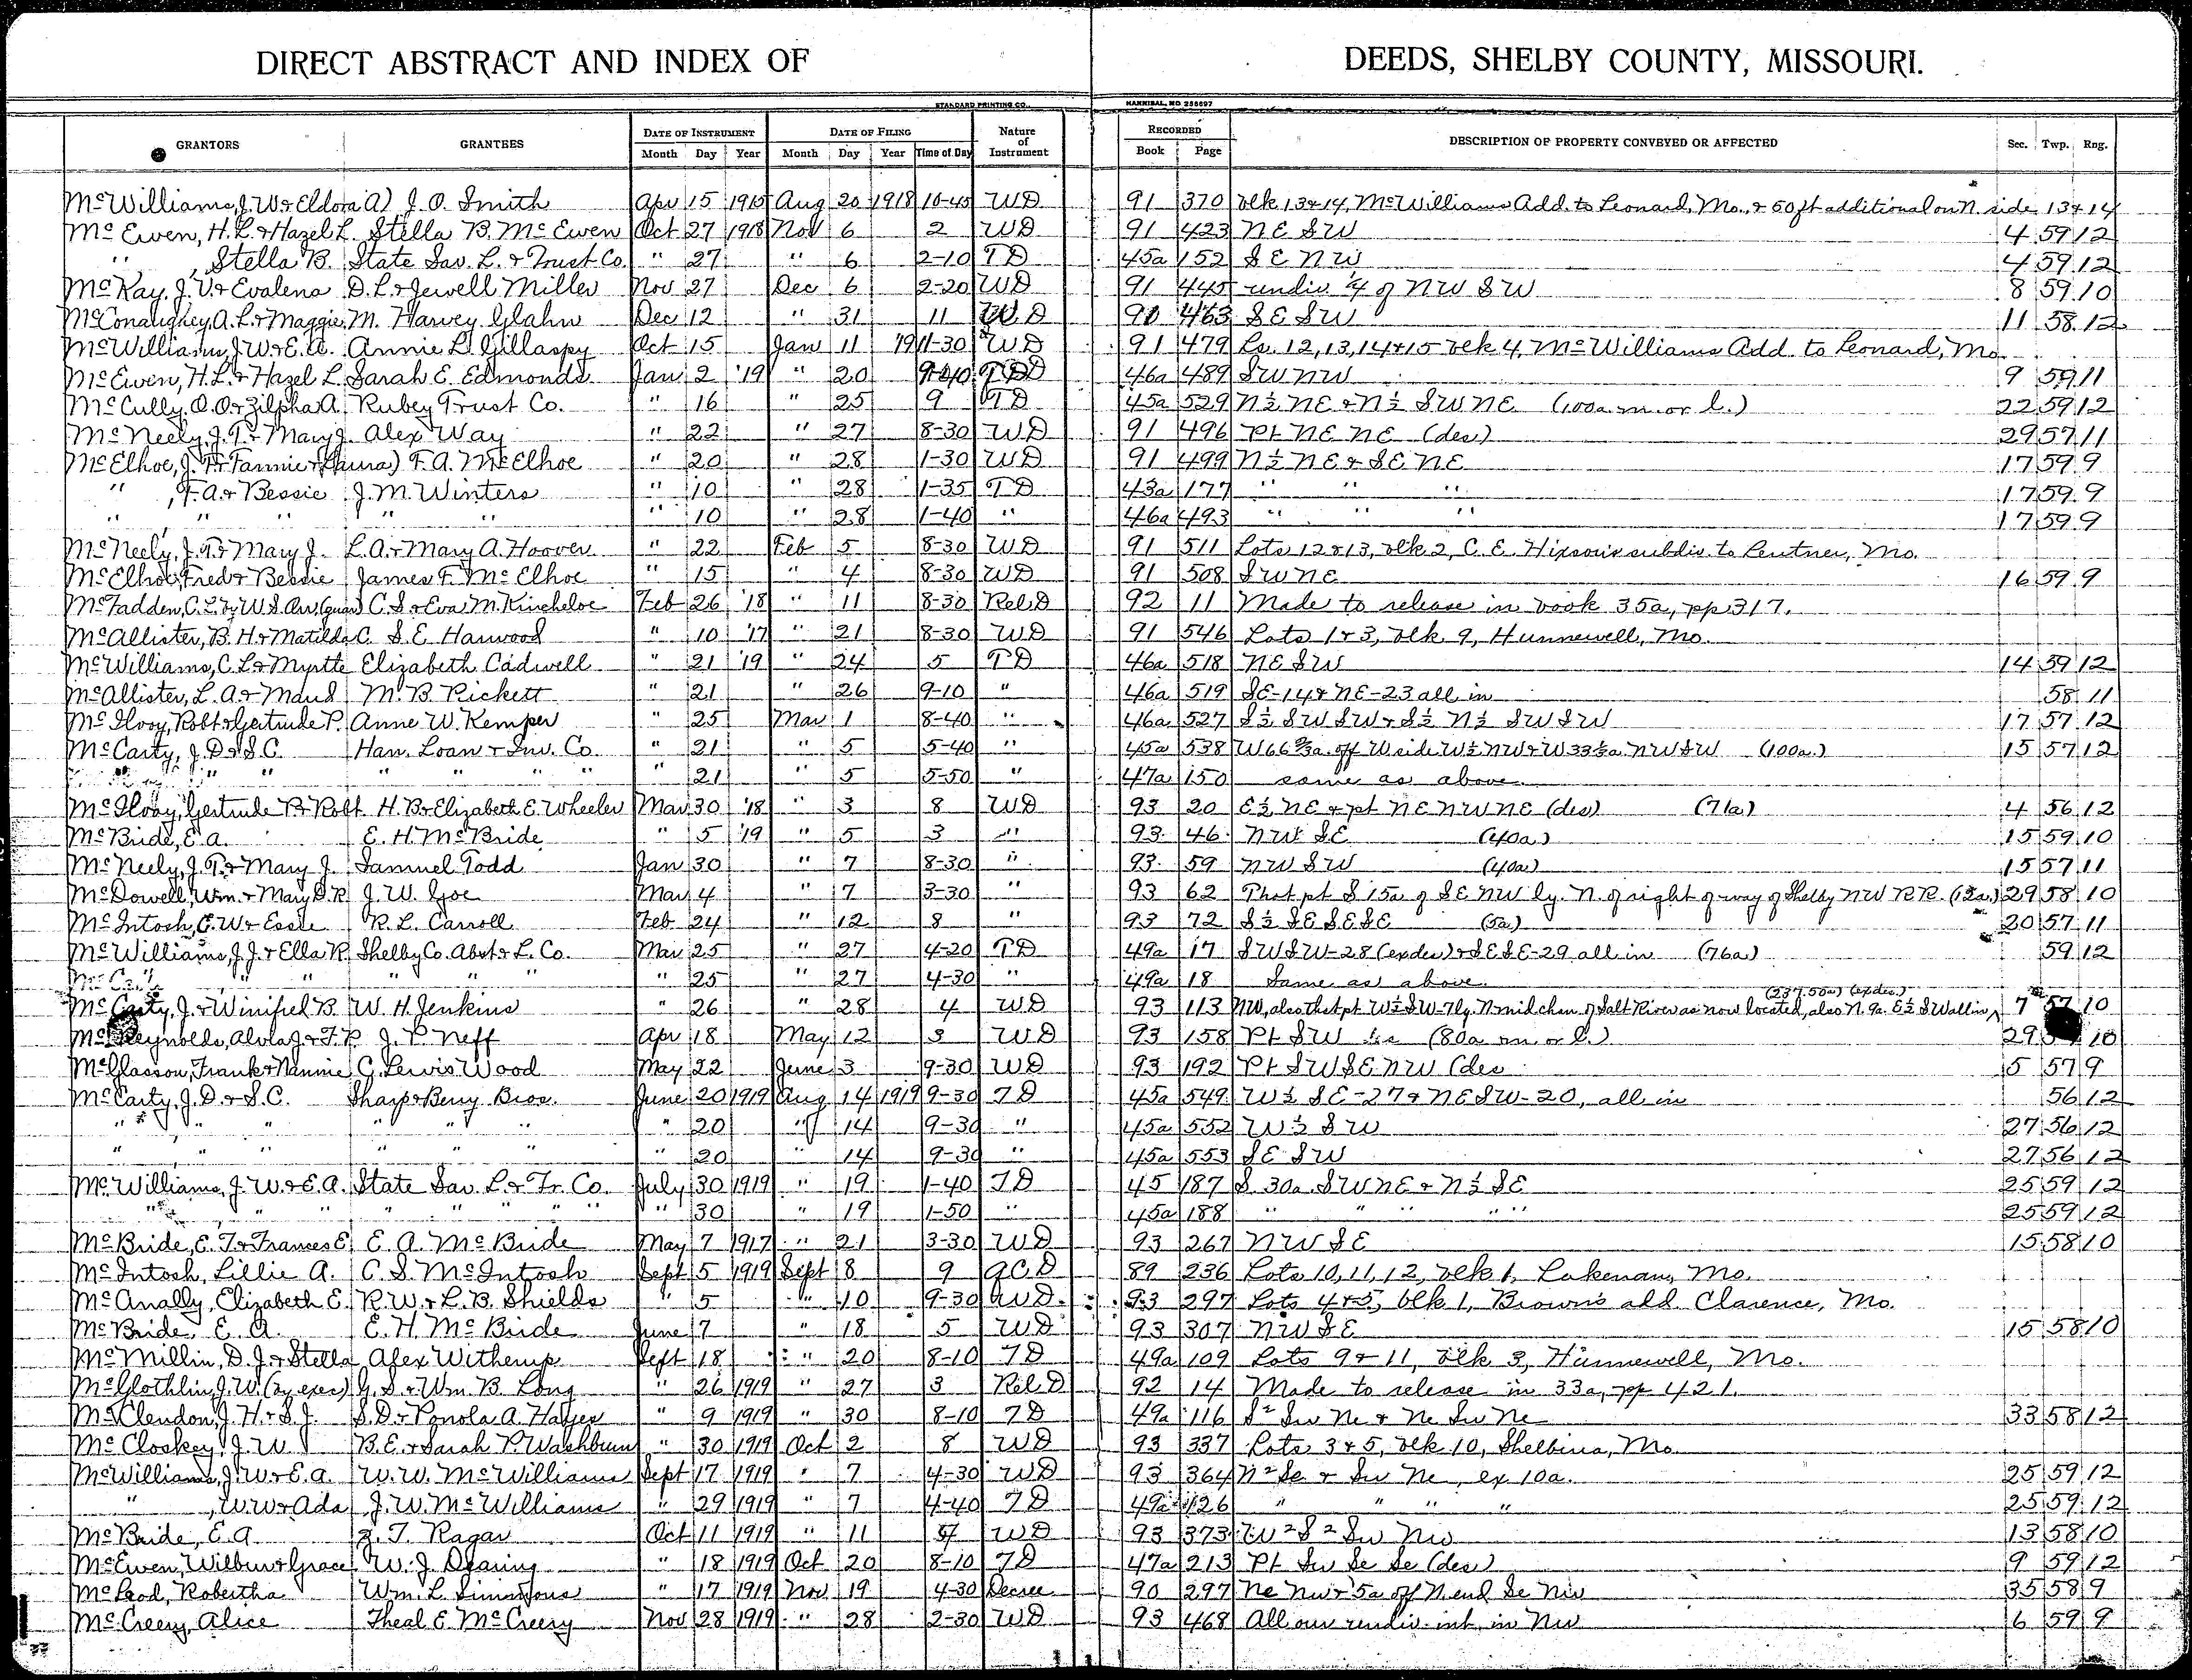 DIRECT ABSTRACT AND INDEX OF DEEDS, SHELBY COUNTY, MISSOURI.
STANDARD PRINTING CO. HANNIBAL, MO 256697
GRANTORS GRANTEES DATE OF INSTRUMENT DATE OF FILING Nature of Instrument RECORDED DESCRIPTION OF PROPERTY CONVEYED OR AFFECTED Sec. Twp. Rng.
Month Day Year Month Day Year Time of Day Book Page
McWilliams, J. W. & Eldora A) J. O. Smith Apr 15 1915 Aug 20 1918 10-45 WD 91 370 blk 13 & 14, McWilliams Add. to Leonard, Mo., & 50 ft additional on N. side 13 & 14
McEwen, H. L. & Hazel L. Stella B. McEwen Oct 27 1918 Nov 6 2 WD 91 423 NE SW 4 59 12
" , Stella B. State Sav. L. & Trust Co. " 27 " 6 2-10 TD 45a 152 SE NW 4 59 12
McKay, J. V. & Evalena D. L. & Jewell Miller Nov 27 Dec 6 2-20 WD 91 445 undiv. 1/4 of NW SW 8 59 10
McConaughey, A. L. & Maggie M. Harvey Glahn Dec 12 " 31 11 WD 90 463 SE SW 11 58 12
McWilliams, J. W. & E. A. Annie L. Gillaspy Oct 15 Jan 11 '19 11-30 WD 91 479 Ls. 12, 13, 14 & 15 blk 4, McWilliams Add. to Leonard, Mo.
McEwen, H. L. & Hazel L. Sarah E. Edmonds Jan 2 '19 " 20 9-40 TD 46a 489 SW NW 9 59 11
McCully, O. O. & Zilpha A. Rubey Trust Co. " 16 " 25 9 TD 45a 529 N½ NE & N½ SW NE (100a m. or l.) 22 59 12
McNeely, J. T. & Mary J. Alex Way " 22 " 27 8-30 WD 91 496 Pt NE NE (des) 29 57 11
McElhoe, J. F. & Fannie & (Laura) F. A. McElhoe " 20 " 28 1-30 WD 91 499 N½ NE & SE NE 17 59 9
" , F. A. & Bessie J. M. Winters " 10 " 28 1-35 TD 43a 177 " " " 17 59 9
" " " " " " 10 " 28 1-40 " 46a 493 " " " 17 59 9
McNeely, J. T. & Mary J. L. A. & Mary A. Hoover " 22 Feb 5 8-30 WD 91 511 Lots 12 & 13, blk 2, C. E. Hixson's subdiv. to Lentner, Mo.
McElhoe, Fred & Bessie James F. McElhoe " 15 " 4 8-30 WD 91 508 SW NE 16 59 9
McFadden, C. L. by W. S. Orr (guar) C. S. & Eva M. Kincheloe Feb 26 '18 " 11 8-30 Rel. D 92 11 Made to release in book 35a, pp 317.
McAllister, B. H. & Matilda C. S. E. Harwood " 10 '17 " 21 8-30 WD 91 546 Lots 1 & 3, blk 9, Hunnewell, Mo.
McWilliams, C. L. & Myrtte Elizabeth Cadwell " 21 '19 " 24 5 TD 46a 518 NE SW 14 59 12
McAllister, L. A. & Maud M. B. Pickett " 21 " 26 9-10 " 46a 519 SE-14 & NE-23 all in 58 11
McIlroy, Robt & Gertrude P. Anne W. Kemper " 25 Mar 1 8-40 " 46a 527 S½ SW SW & S½ N½ SW SW 17 57 12
McCarty, J. D. & S. C. Han. Loan & Inv. Co. " 21 " 5 5-40 " 45a 538 W 66⅔a. off W side W½ NW & W 33⅓a NW SW (100a.) 15 57 12
" " " " " " " 21 " 5 5-50 " 47a 150 same as above
McIlroy, Gertrude P. & Robt H. B. & Elizabeth E. Wheeler Mar 30 '18 " 3 8 WD 93 20 E½ NE & pt NE NW NE (des) (71a) 4 56 12
McBride, E. A. E. H. McBride " 5 '19 " 5 3 " 93 46 NW SE (40a) 15 59 10
McNeely, J. T. & Mary J. Samuel Todd Jan 30 " 7 8-30 " 93 59 NW SW (40a) 15 57 11
McDowell, Wm. & Mary D. R. J. W. Goe Mar 4 " 7 3-30 " 93 62 That pt S 15a of SE NW ly. N. of right of way of Shelby NW RR. (12a.) 29 58 10
McIntosh, C. W. & Essie R. L. Carroll Feb 24 " 12 8 " 93 72 S½ SE SE SE (5a) 20 57 11
McWilliams, J. J. & Ella R. Shelby Co. Abst. & L. Co. Mar 25 " 27 4-20 TD 49a 17 SW SW-28 (exdes) & SE SE-29 all in (76a) 59 12
" " " " " " 25 " 27 4-30 " 49a 18 Same as above
McCarty, J. & Winifred B. W. H. Jenkins " 26 " 28 4 WD 93 113 NW, also that pt W½ SW-7 ly. N. mid chan. of Salt River as now located, also N. 9a. E½ SW all in (237.50a) (exdes.) 7 57 10
McReynolds, Alvla J. & F. R. J. P. Neff Apr 18 May 12 3 WD 93 158 Pt SW (80a m. or l.) 29 10
McGlasson, Frank & Nannie C. Lewis Wood May 22 June 3 9-30 WD 93 192 Pt SW SE NW (des 5 57 9
McCarty, J. D. & S. C. Sharp & Berry Bros. June 20 1919 Aug 14 1919 9-30 TD 45a 549 W½ SE-27 & NE SW-20, all in 56 12
" " " " " " " 20 " 14 9-30 " 45a 552 W½ SW 27 56 12
" " " " " " " 20 " 14 9-30 " 45a 553 SE SW 27 56 12
McWilliams, J. W. & E. A. State Sav. L. & Tr. Co. July 30 1919 " 19 1-40 TD 45 187 S. 30a. SW NE & N½ SE 25 59 12
" " " " " " " 30 " 19 1-50 " 45a 188 " " " " " 25 59 12
McBride, E. T. & Frances E. E. A. McBride May 7 1917 " 21 3-30 WD 93 267 NW SE 15 58 10
McIntosh, Lillie A. C. S. McIntosh Sept 5 1919 Sept 8 9 QCD 89 236 Lots 10, 11, 12, blk 1, Lakenan, Mo.
McAnally, Elizabeth E. R. W. & L. B. Shields " 5 " 10 9-30 WD 93 297 Lots 4 & 5, blk 1, Brown's add. Clarence, Mo.
McBride, E. A. E. H. McBride June 7 " 18 5 WD 93 307 NW SE 15 58 10
McMillin, D. J. & Stella Alex Witherup Sept 18 " 20 8-10 TD 49a 109 Lots 9 & 11, blk 3, Hunnewell, Mo.
McGlothlin, J. W. (by exec) G. S. & Wm. B. Long " 26 1919 " 27 3 Rel D 92 14 Made to release in 33a, pp 421.
McClendon, J. H. & S. J. S. D. & Ponola A. Hayes " 9 1919 " 30 8-10 TD 49a 116 S² Sw Ne & Ne Sw Ne 33 58 12
McCloskey, J. W. B. E. & Sarah P. Washburn " 30 1919 Oct 2 8 WD 93 337 Lots 3 & 5, blk 10, Shelbina, Mo.
McWilliams, J. W. & E. A. W. W. McWilliams Sept 17 1919 " 7 4-30 WD 93 364 N² Se & Sw Ne, ex 10a. 25 59 12
" , W. W. & Ada J. W. McWilliams " 29 1919 " 7 4-40 TD 49a 126 " " " " 25 59 12
McBride, E. A. Z. T. Ragar Oct 11 1919 " 11 WD 93 373 W² S² Sw Nw 13 58 10
McEwen, Wilbur & Grace W. J. Dearing " 18 1919 Oct 20 8-10 TD 47a 213 Pt Sw Se Se (des) 9 59 12
McLeod, Robertha Wm. L. Simmons " 17 1919 Nov 19 4-30 Decree 90 297 Ne Nw & 5a off N. end Se Nw 35 58 9
McCreery, Alice Theal E. McCreery Nov 28 1919 " 28 2-30 WD 93 468 All our undiv. int. in Nw 6 59 9